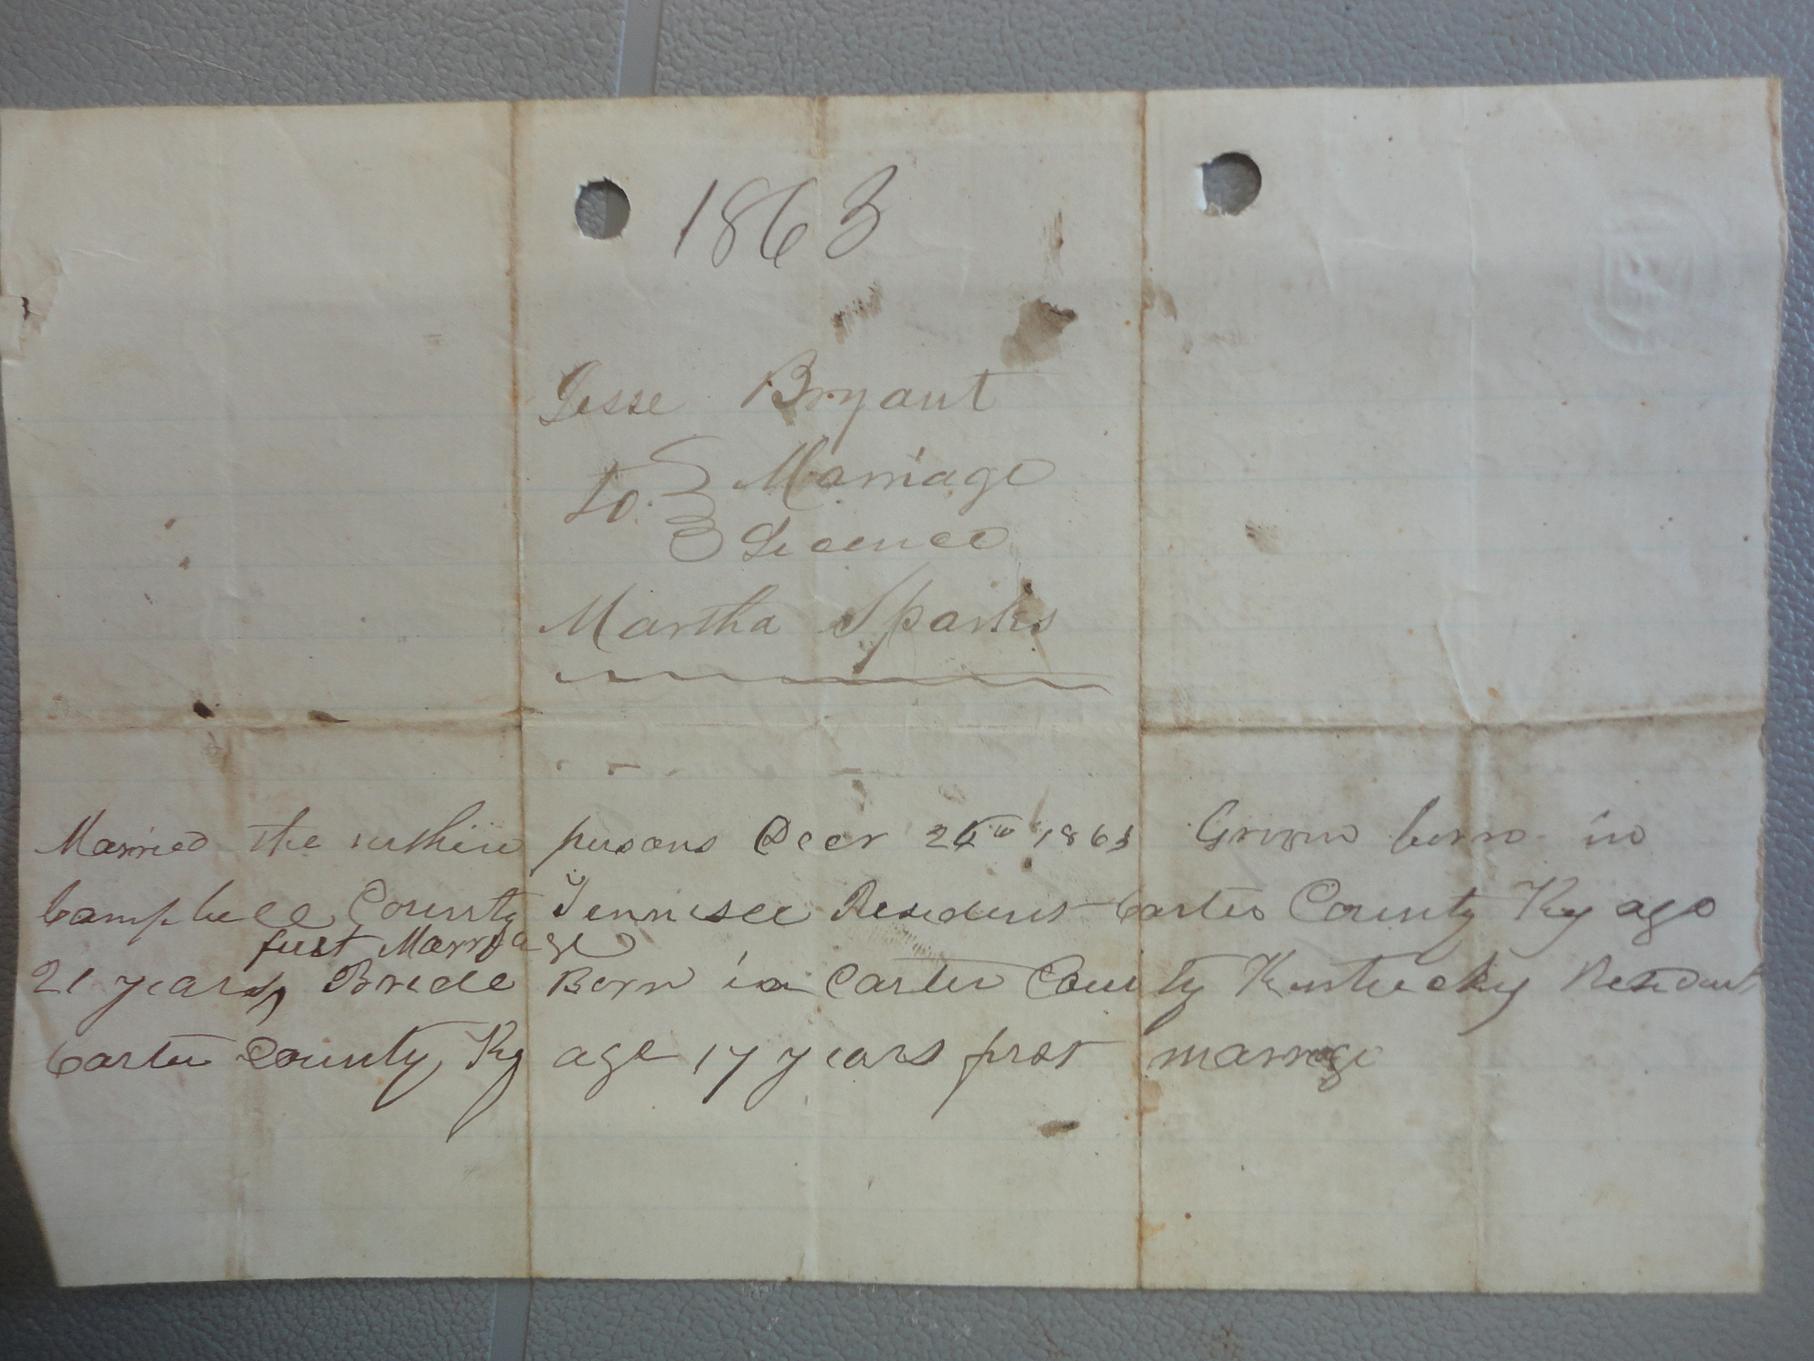 1863
Jesse Bryant
to. Marriage
Licence
Martha Sparks
Married the within persons Decr 1863 Groom born in
Campbell County Tennisee Resident Carter County Ky age
first Marriage
21 years Bride Born in Carter County Kentucky Resident
Carter County Ky age 17 years first marrage